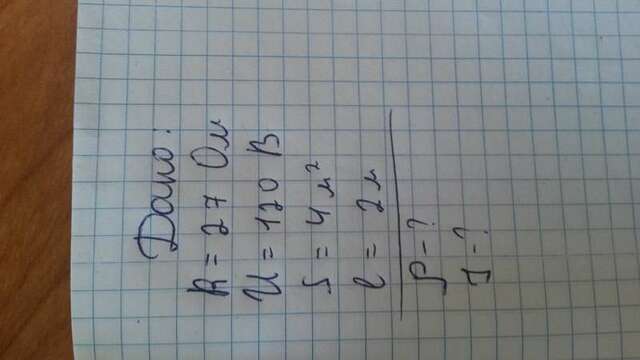 Дано:
R = 27 Ом
U = 120 В
S = 4 м²
l = 2 м
ρ - ?
J - ?